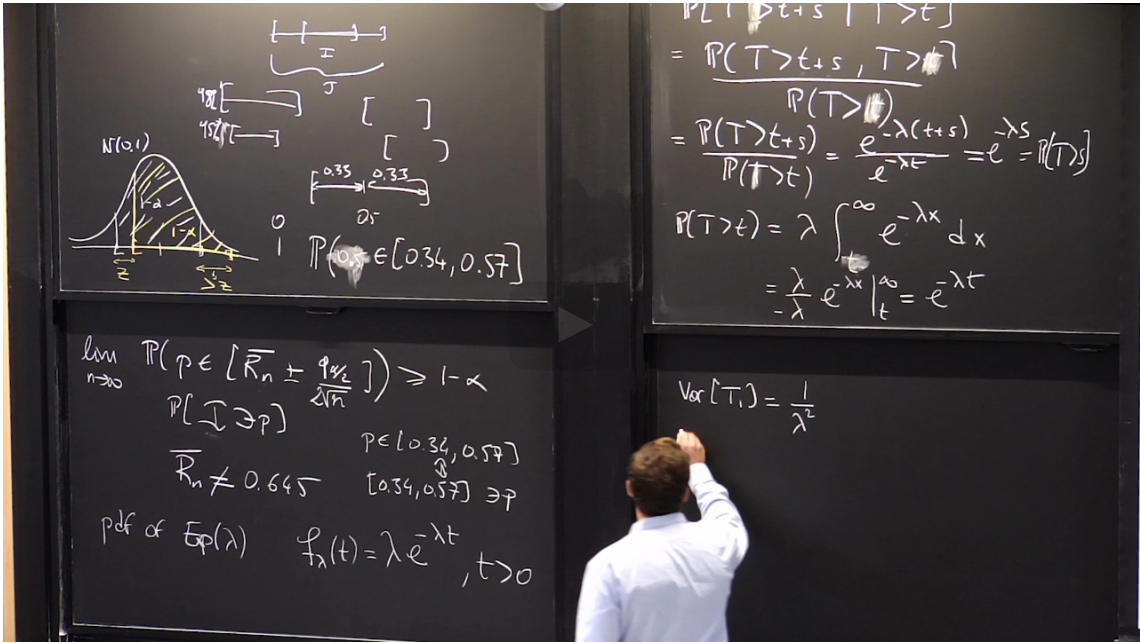 I
J
48%
45%
[ ]
[ )
N(0,1)
0.33 0.33
0.5
1-α
1-α
z
>z
0
1
ℙ(0.5 ∈ [0.34, 0.57]
lim n→∞ ℙ( p ∈ [ R̄n ± qα/2 / 2√n ]) ≥ 1-α
ℙ[ I ∋ p ]
p ∈ [0.34, 0.57]
⇕
[0.34, 0.57] ∋ p
R̄n ≠ 0.645
pdf of Exp(λ) fλ(t) = λ e^{-λt}, t > 0
ℙ[ T > t+s | T > t ]
= ℙ( T > t+s , T > t ) / ℙ( T > t )
= ℙ( T > t+s ) / ℙ( T > t ) = e^{-λ(t+s)} / e^{-λt} = e^{-λs} = ℙ[T > s]
ℙ(T > t) = λ ∫_t^∞ e^{-λx} dx
= λ / -λ e^{-λx} |_t^∞ = e^{-λt}
Var[T₁] = 1 / λ²